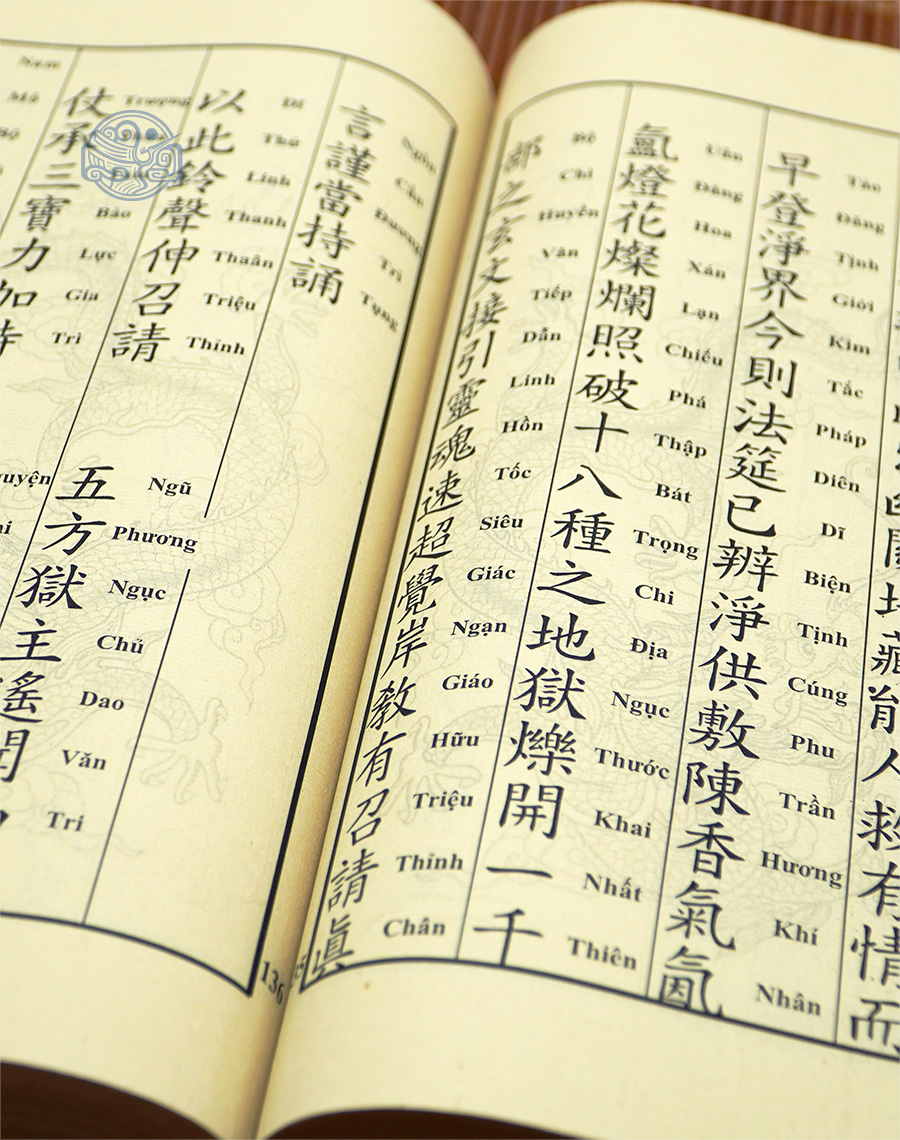 救有情而
早登淨界今則法筵已辨淨供敷陳香氣氤
Tảo Đăng Tịnh Giới Kim Tắc Pháp Diên Dĩ Biện Tịnh Cúng Phu Trần Hương Khí Nhân
氳燈花燦爛照破十八種之地獄爍開一千
Uân Đăng Hoa Xán Lạn Chiếu Phá Thập Bát Trọng Chi Địa Ngục Thước Khai Nhất Thiên
部之玄文接引靈魂速超覺岸敎有召請眞
Bộ Chi Huyền Văn Tiếp Dẫn Linh Hồn Tốc Siêu Giác Ngạn Giáo Hữu Triệu Thỉnh Chân
言謹當持誦
Ngôn Cẩn Đương Trì Tụng
以此鈴聲伸召請
Dĩ Thử Linh Thanh Thaân Triệu Thỉnh
五方獄主遙聞
Ngũ Phương Ngục Chủ Dao Văn Tri
仗承三寶力加持
Trượng Bảo Lực Gia Trì
Nam Mô
136